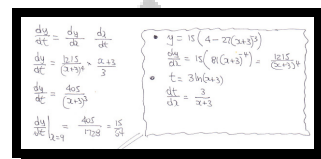 dy/dt = dy/dx dx/dt
dy/dt = 1215/(x+3)^4 × (x+3)/3
dy/dt = 405/(x+3)^3
dy/dt |x=9 = 405/1728 = 15/64
• y = 15(4 - 27(x+3)^-3)
dy/dx = 15(81(x+3)^-4) = 1215/(x+3)^4
• t = 3ln(x+3)
dt/dx = 3/(x+3)